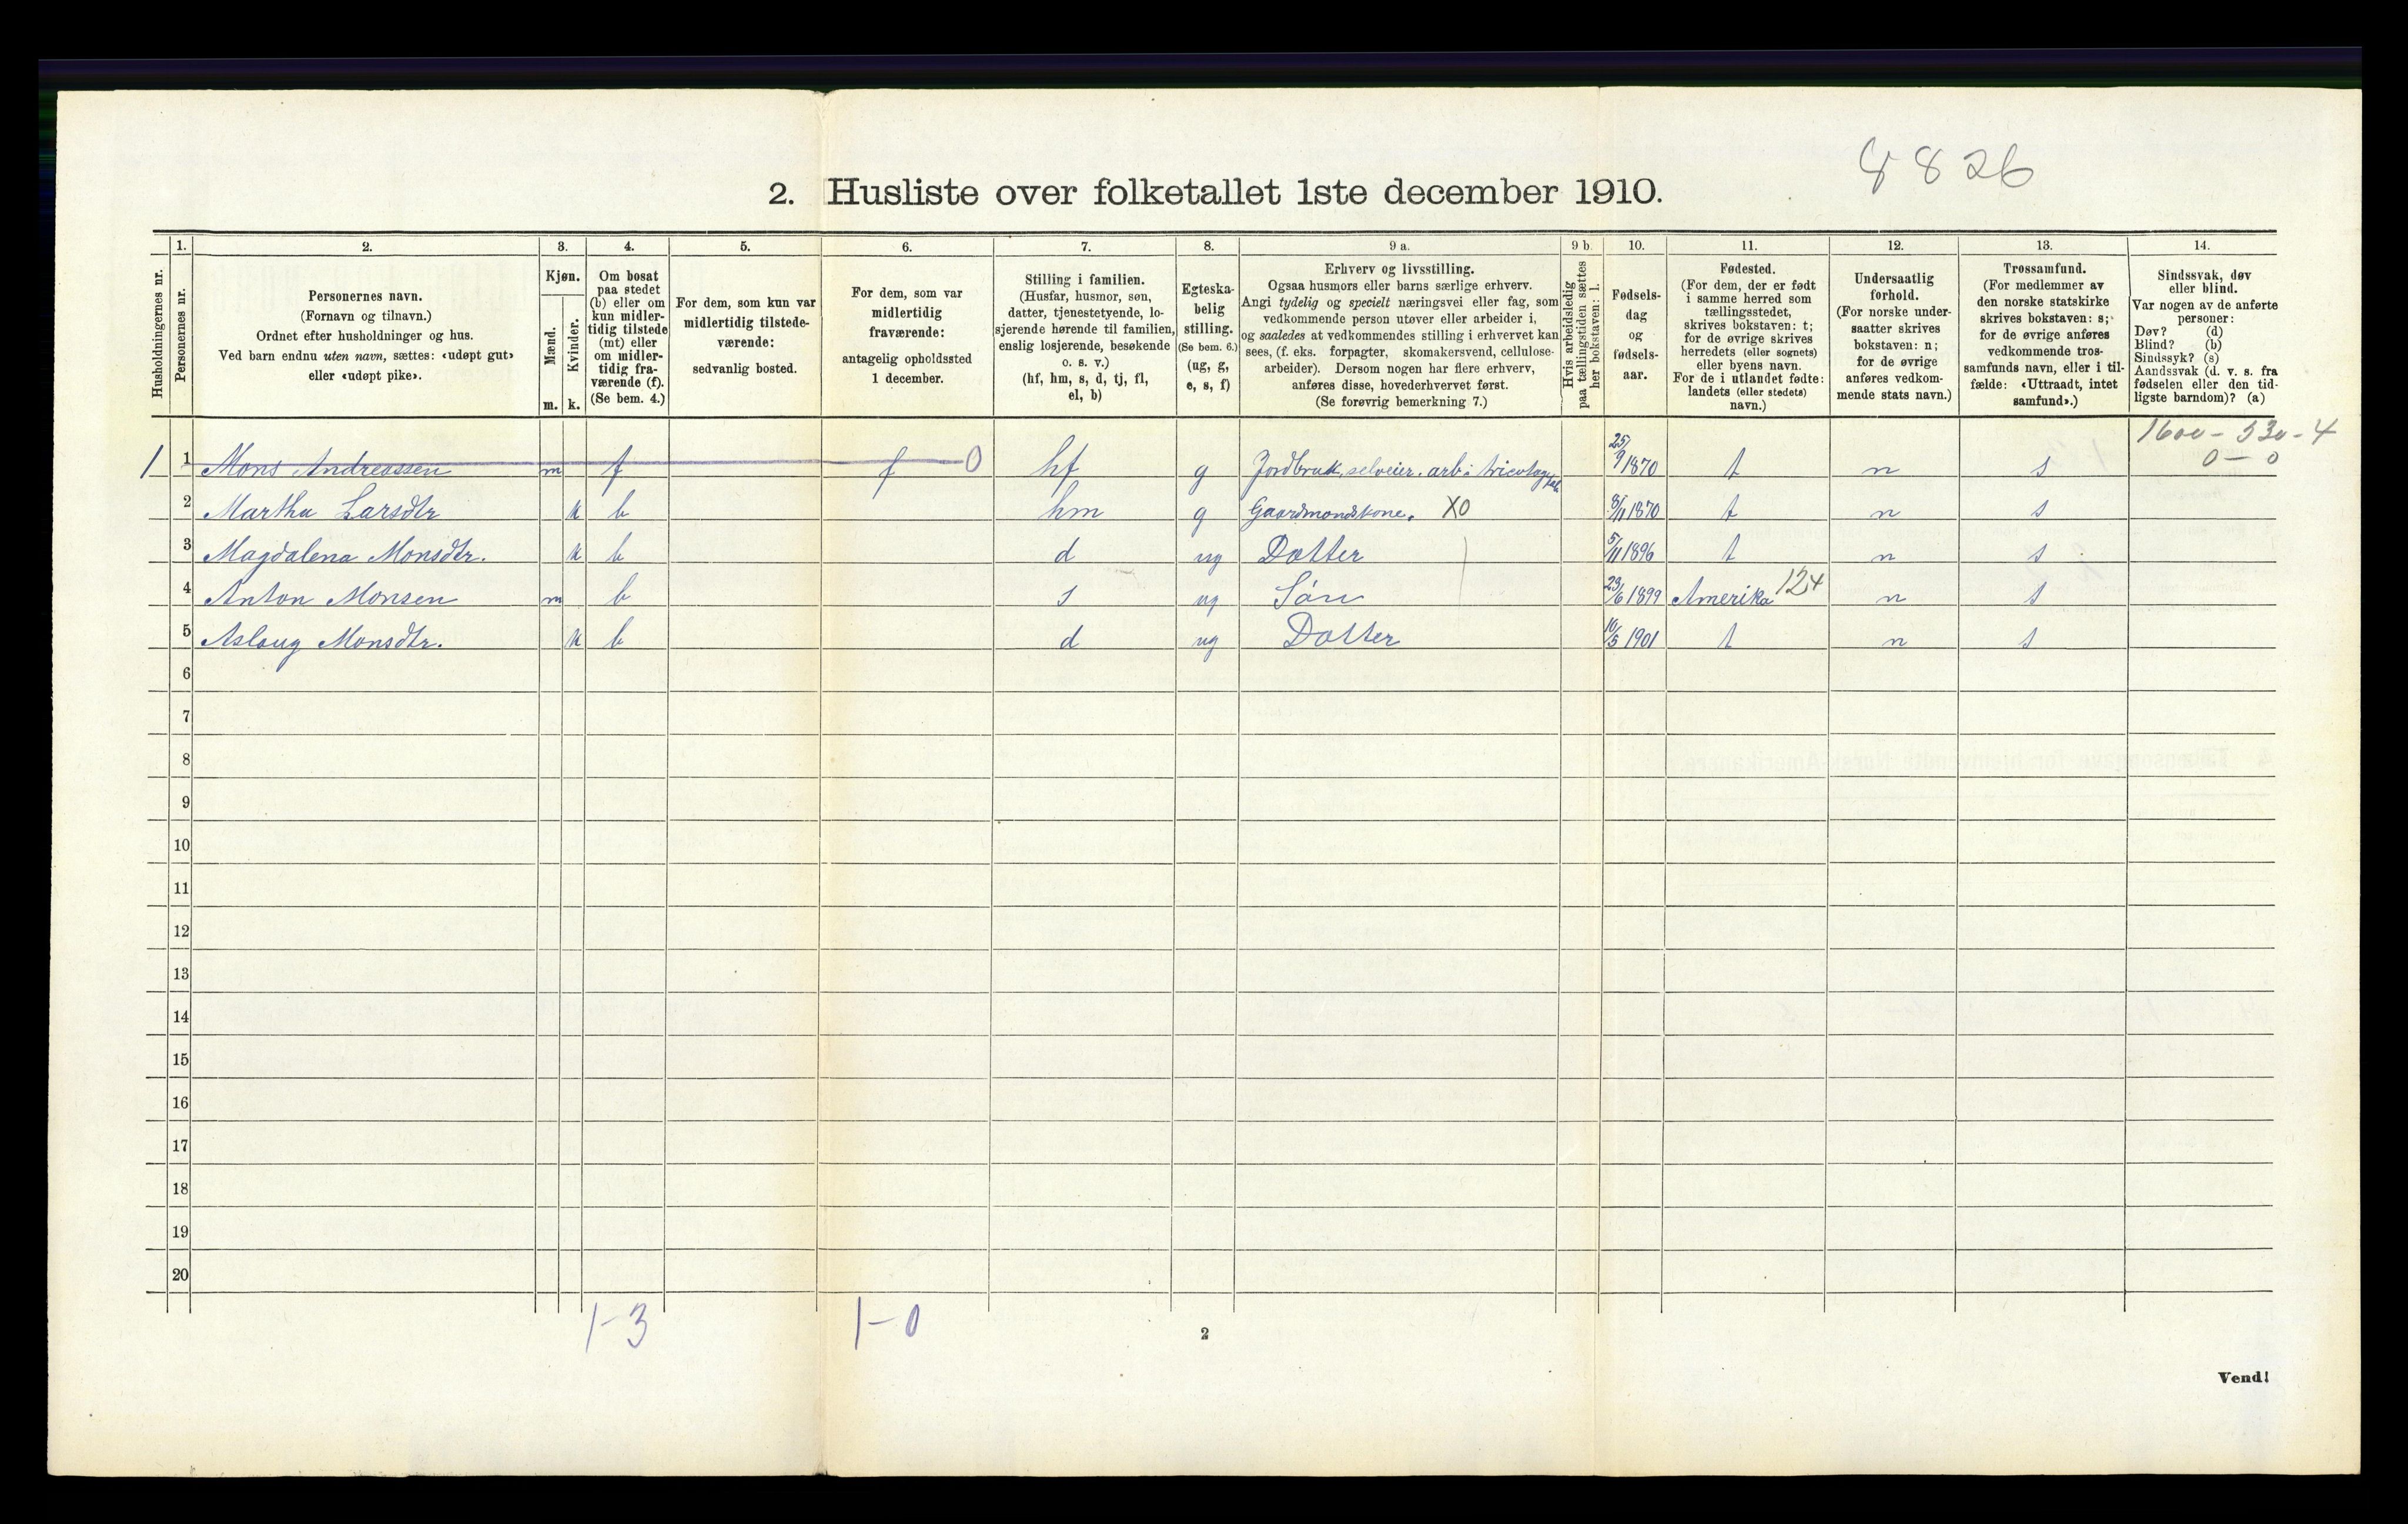 8826
2. Husliste over folketallet 1ste december 1910.
Husholdningernes nr.
1. Personernes nr.
2. Personernes navn. (Fornavn og tilnavn.) Ordnet efter husholdninger og hus. Ved barn endnu uten navn, sættes: «udøpt gut» eller «udøpt pike».
3. Kjøn. Mænd. m. Kvinder. k.
4. Om bosat paa stedet (b) eller om kun midler-tidig tilstede (mt) eller om midler-tidig fra-værende (f). (Se bem. 4.)
5. For dem, som kun var midlertidig tilstede-værende: sedvanlig bosted.
6. For dem, som var midlertidig fraværende: antagelig opholdssted 1 december.
7. Stilling i familien. (Husfar, husmor, søn, datter, tjenestetyende, lo-sjerende hørende til familien, enslig losjerende, besøkende o. s. v.) (hf, hm, s, d, tj, fl, el, b)
8. Egteska-belig stilling. (Se bem. 6.) (ug, g, e, s, f)
9 a. Erhverv og livsstilling. Ogsaa husmors eller barns særlige erhverv. Angi tydelig og specielt næringsvei eller fag, som vedkommende person utøver eller arbeider i, og saaledes at vedkommendes stilling i erhvervet kan sees, (f. eks. forpagter, skomakersvend, cellulose-arbeider). Dersom nogen har flere erhverv, anføres disse, hovederhvervet først. (Se forøvrig bemerkning 7.)
9 b. Hvis arbeidsledig paa tællingstiden sættes her bokstaven: l.
10. Fødsels-dag og fødsels-aar.
11. Fødested. (For dem, der er født i samme herred som tællingsstedet, skrives bokstaven: t; for de øvrige skrives herredets (eller sognets) eller byens navn. For de i utlandet fødte: landets (eller stedets) navn.)
12. Undersaatlig forhold. (For norske under-saatter skrives bokstaven: n; for de øvrige anføres vedkom-mende stats navn.)
13. Trossamfund. (For medlemmer av den norske statskirke skrives bokstaven: s; for de øvrige anføres vedkommende tros-samfunds navn, eller i til-fælde: «Uttraadt, intet samfund».)
14. Sindssvak, døv eller blind. Var nogen av de anførte personer: Døv? (d) Blind? (b) Sindssyk? (s) Aandssvak (d. v. s. fra fødselen eller den tid-ligste barndom)? (a)
1600 - 530 - 4
0 - 0
1 1 Mons Andreassen m f f 0 hf g Jordbruk, selveier. arb. i tricotagefab 25/9 1870 t n s
2 Martha Larsdtr k b hm g Gaardmandskone. X0 8/11 1870 t n s
3 Magdalena Monsdtr. k b d ug Datter 5/11 1896 t n s
4 Anton Monsen m b s ug Søn 23/6 1899 Amerika 124 n s
5 Aslaug Monsdtr. k b d ug Datter 10/5 1901 t n s
6
7
8
9
10
11
12
13
14
15
16
17
18
19
20
1-3 1-0
2
Vend!